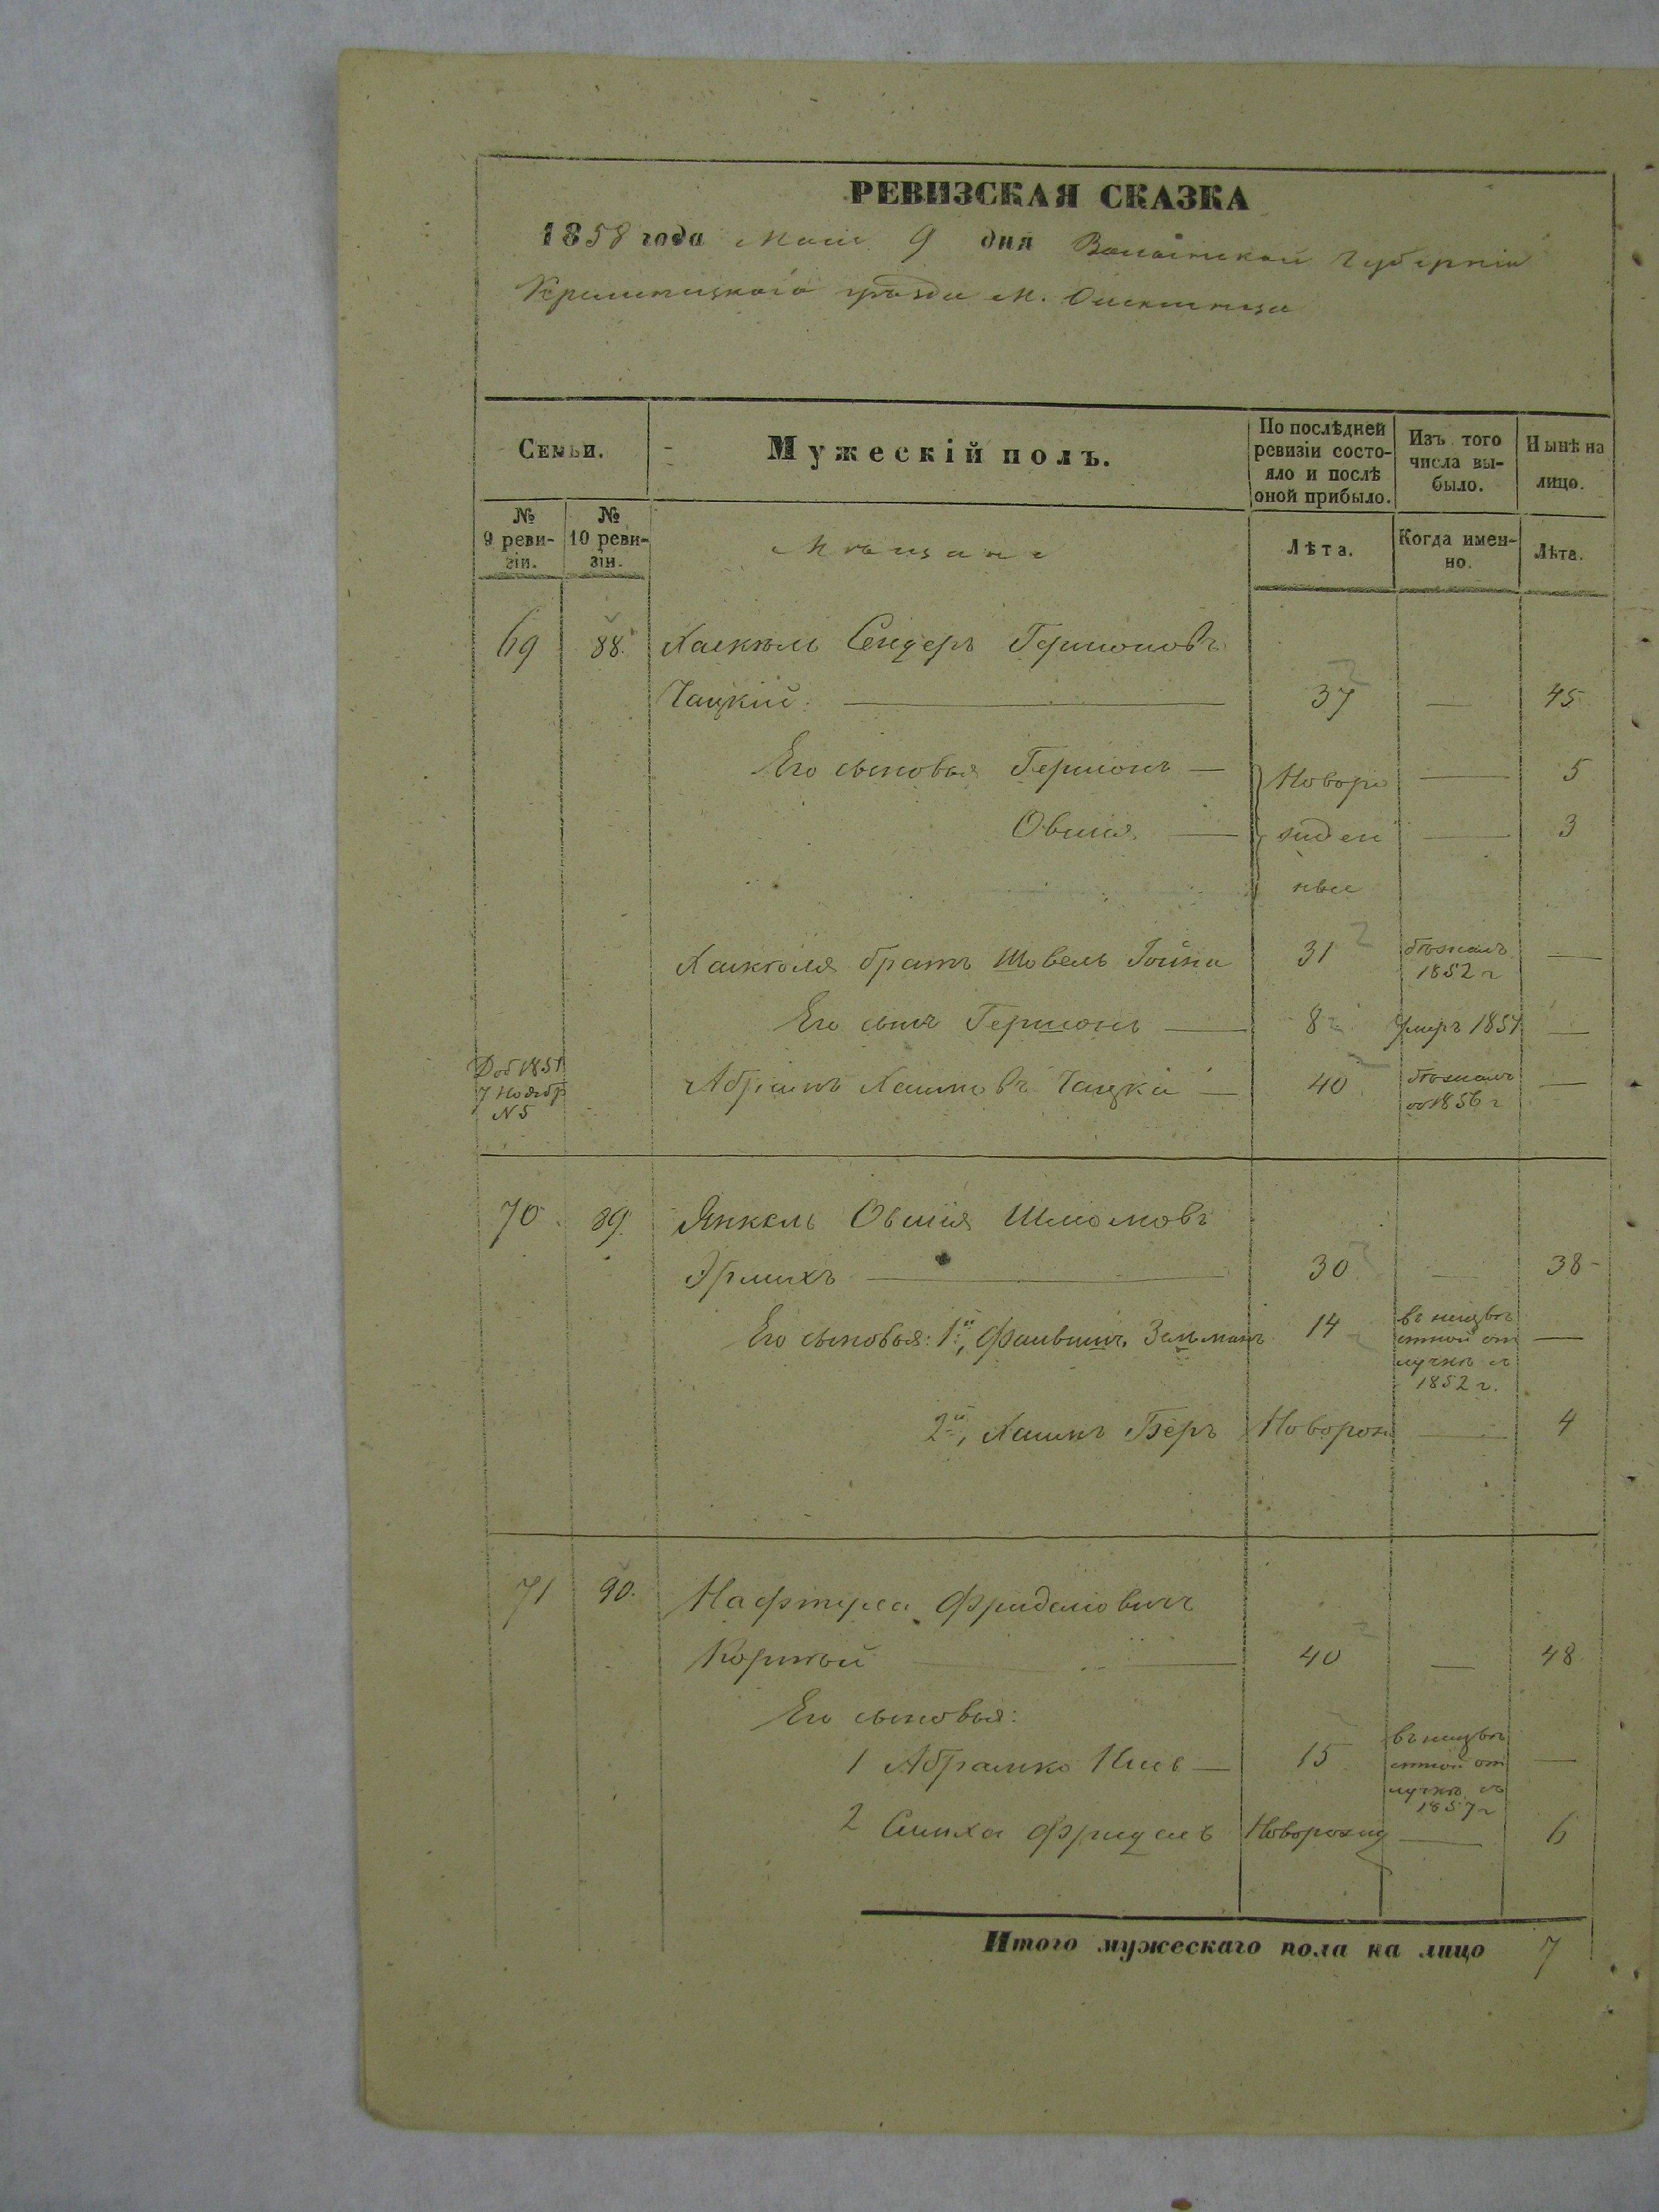 РЕВИЗСКАЯ СКАЗКА
1858 года Маія 9 дня Волынской Губерніи
Кременецкаго уѣзда М.
Семьи.
Мужескій полъ.
По послѣдней ревизіи состояло и послѣ оной прибыло.
Изъ того числа выбыло.
Нынѣ на лицо.
№ 9 ревизіи.
№ 10 ревизіи.
Мѣщане
Лѣта.
Когда именно.
Лѣта.
69 88. Хаскель Сендеръ Гершоновъ
Чацкій. 37 — 45
Его сыновья Гершонъ — Новоро — 5
Овшія — жден — 3
ные
Хаскеля братъ Шовель 31 бѣжалъ —
1852 г
Его сынъ Гершонъ — 8 Умеръ 185 —
Доб 1851
7 Ноябр
N 5
Абрамъ Хаимовъ Чацкій — 40 бѣжалъ —
1856 г
70 89. Янкель Овшія Шломовъ
Эрлихъ — 30 — 38
Его сыновья: 1й, Зельманъ 14 въ неизвѣ —
стной от
лучкѣ съ
1852 г.
2й, Хаимъ Беръ Новорож — 4
71 90. Фриделовичъ
40 — 48
Его сыновья:
1 Абрамко — 15 въ неизвѣ —
стной от
лучкѣ съ
1857 г
2 Симха Фридель Новорожд — 6
Итого мужескаго пола на лицо 7